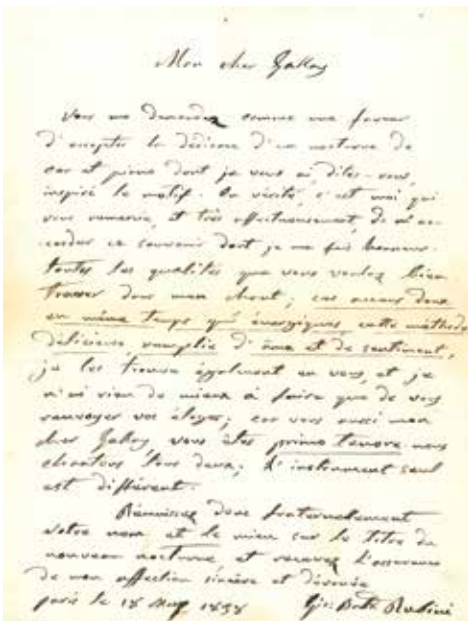 Mon cher Gallay
Vous me demandez comme une faveur
d'accepter la dédicace d'un nocturne de
cor et piano dont je vous ai, dites-vous,
inspiré le motif. En vérité, c'est moi qui
vous remercie, et très affectueusement, de m'ac-
-corder ce souvenir dont je me fais honneur.
toutes les qualités que vous voulez bien
trouver dans mon chant; ces accens doux
en même temps qu'énergiques, cette méthode
délicieuse, remplie d'âme et de sentiment,
je les trouve également en vous, et je
n'ai rien de mieux à faire que de vous
renvoyer vos éloges; car vous aussi mon
cher Gallay, vous êtes primo tenore. nous
chantons tous deux; l'instrument seul
est différent.
Réunissez donc fraternellement
votre nom et le mien sur le titre du
nouveau nocturne, et recevez l'assurance
de mon affection sincère et dévouée
paris le 18 1838 Rubini